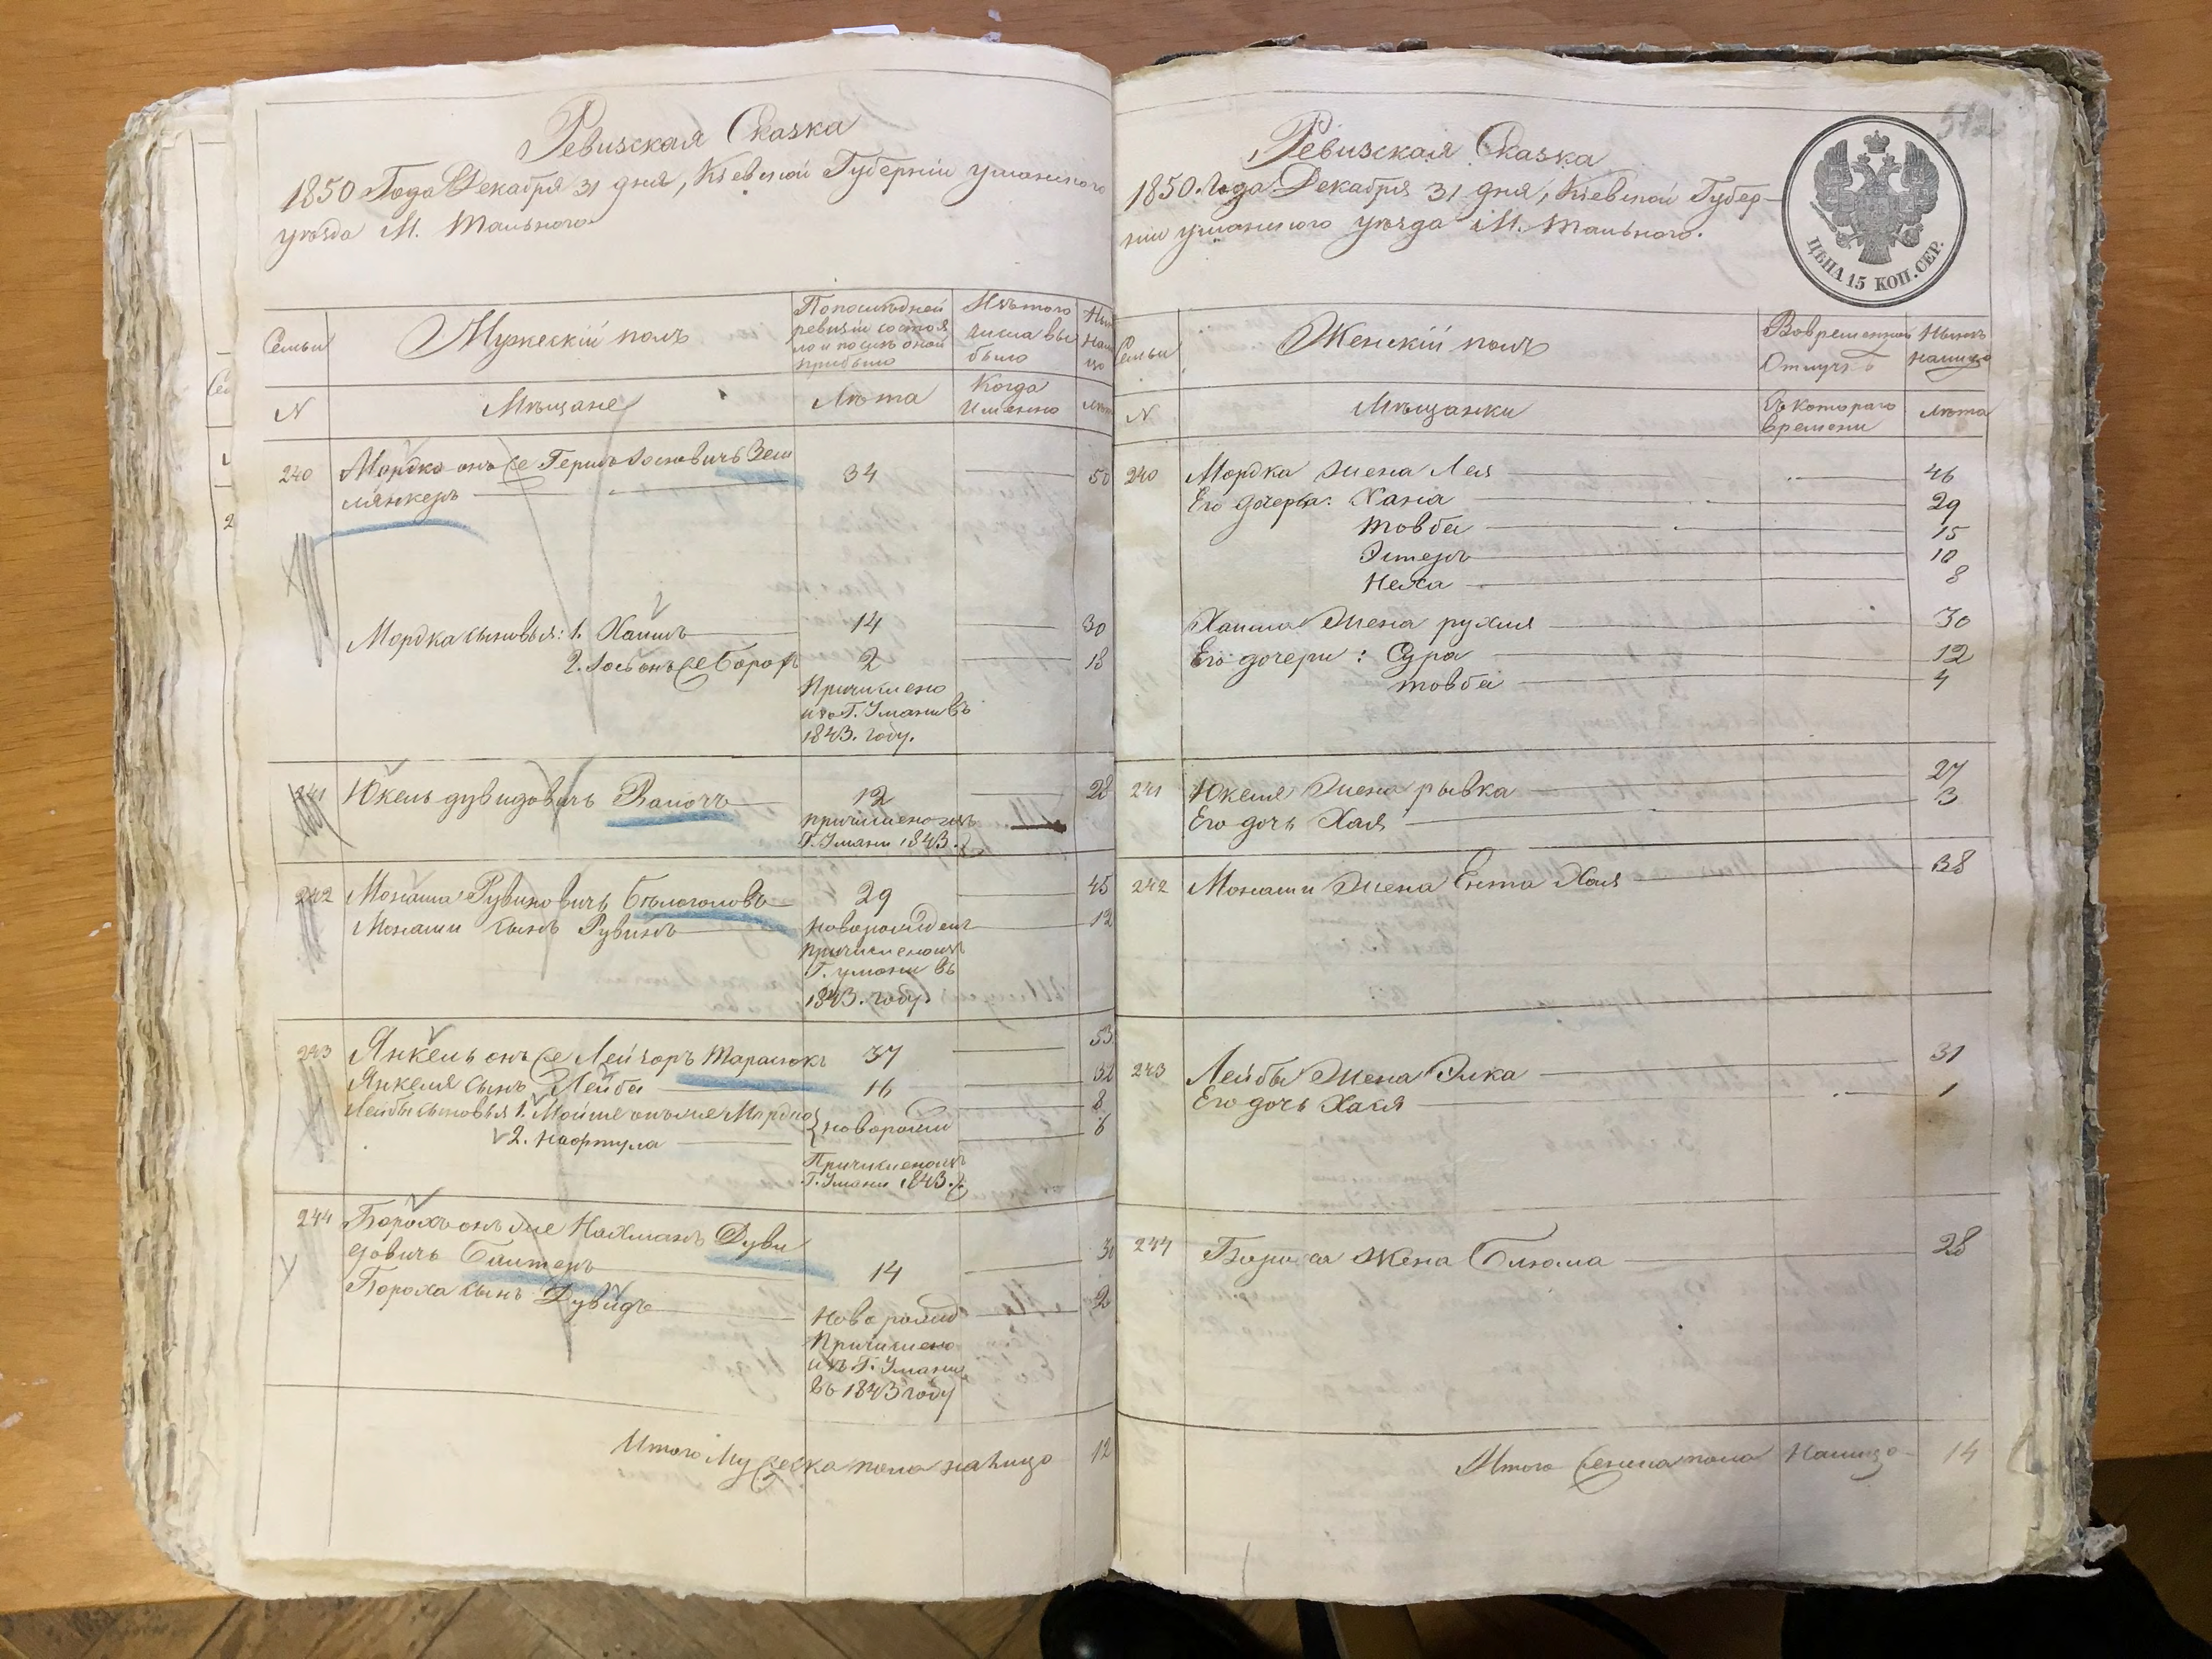 Ревизская Сказка
1850 Года Декабря 31 дня, Кіевской Губерніи уманского
уезда М. Тального
Семьи
Мужескій полъ
Попоследней
ревизіи состоя
ло и после оной
прибыло
Изътого
числа вы
было
Ны
нали
цо
N
Мещане
Лета
Когда
Именно
Лета
240
Мордко онъ же Гершъ Іосиовичъ Зем
лянкеръ
34
50
Мордка сыновья: 1. Хаимъ
14
30
2. Іось онъ же Борох
2
18
Причислено
изъ Г. Умани въ
1843. году.
241
Юкель дувидовичъ Рапочъ
12
28
причислено изъ
Г. Умани 1843. г.
242
Монаша Рувиновичъ Белоголовъ
29
45
Монаши сынъ Рувинъ
новорожден
12
причислено изъ
Г. умани въ
1843. году.
243
Янкель онъ же Лейзоръ Тарасюкъ
37
53
Янкеля сынъ Лейба
16
32
Лейбы сыновья 1. Мойше онъ же Мордко
8
2. Нафтула
новорожд
6
Причислено изъ
Г. Умани 1843. г.
244
Борохъ онъ же Нахманъ Дуви
довичъ Блитеръ
14
30
Бороха сынъ Дувидъ
Новорожд
2
Причислено
изъ Г. Умани
въ 1843 году
Итого Мужеска пола налицо
12
512
Ревизская Сказка
1850. Года Декабря 31 дня, Кіевской Губер-
ніи уманского уезда М. Тального.
ЦѢНА 15 КОП. СЕР.
Семьи
Женскій полъ
Вовременной
Отлучке
Ныне
налицо
N
Мещанки
Съ котораго
времени
Лета
240
Мордка жена Лея
46
Его дочери: Хана
29
Товба
15
Эстеръ
10
Неха
8
Хаима жена рухля
30
Его дочери: Сура
12
товба
4
241
Юкеля жена рывка
27
Его дочь Хая
3
242
Монаши жена Ента Хая
38
243
Лейбы жена Элка
31
Его дочь Хася
1
244
Бороха жена Блюма
28
Итого женска пола Налицо
14